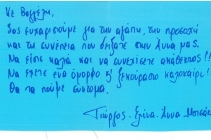 κε Βαγγέλη,
Σας ευχαριστούμε για την αγάπη, την προσοχή
και τη συνέπεια που δείξατε στην Άννα μας.
Να είστε καλά και να συνεχίσετε απαθέστατος!
Να έχετε ένα όμορφο & ξεκούραστο καλοκαίρι!
Θα τα πούμε σύντομα.
Γιώργος - Ελένα - Άννα